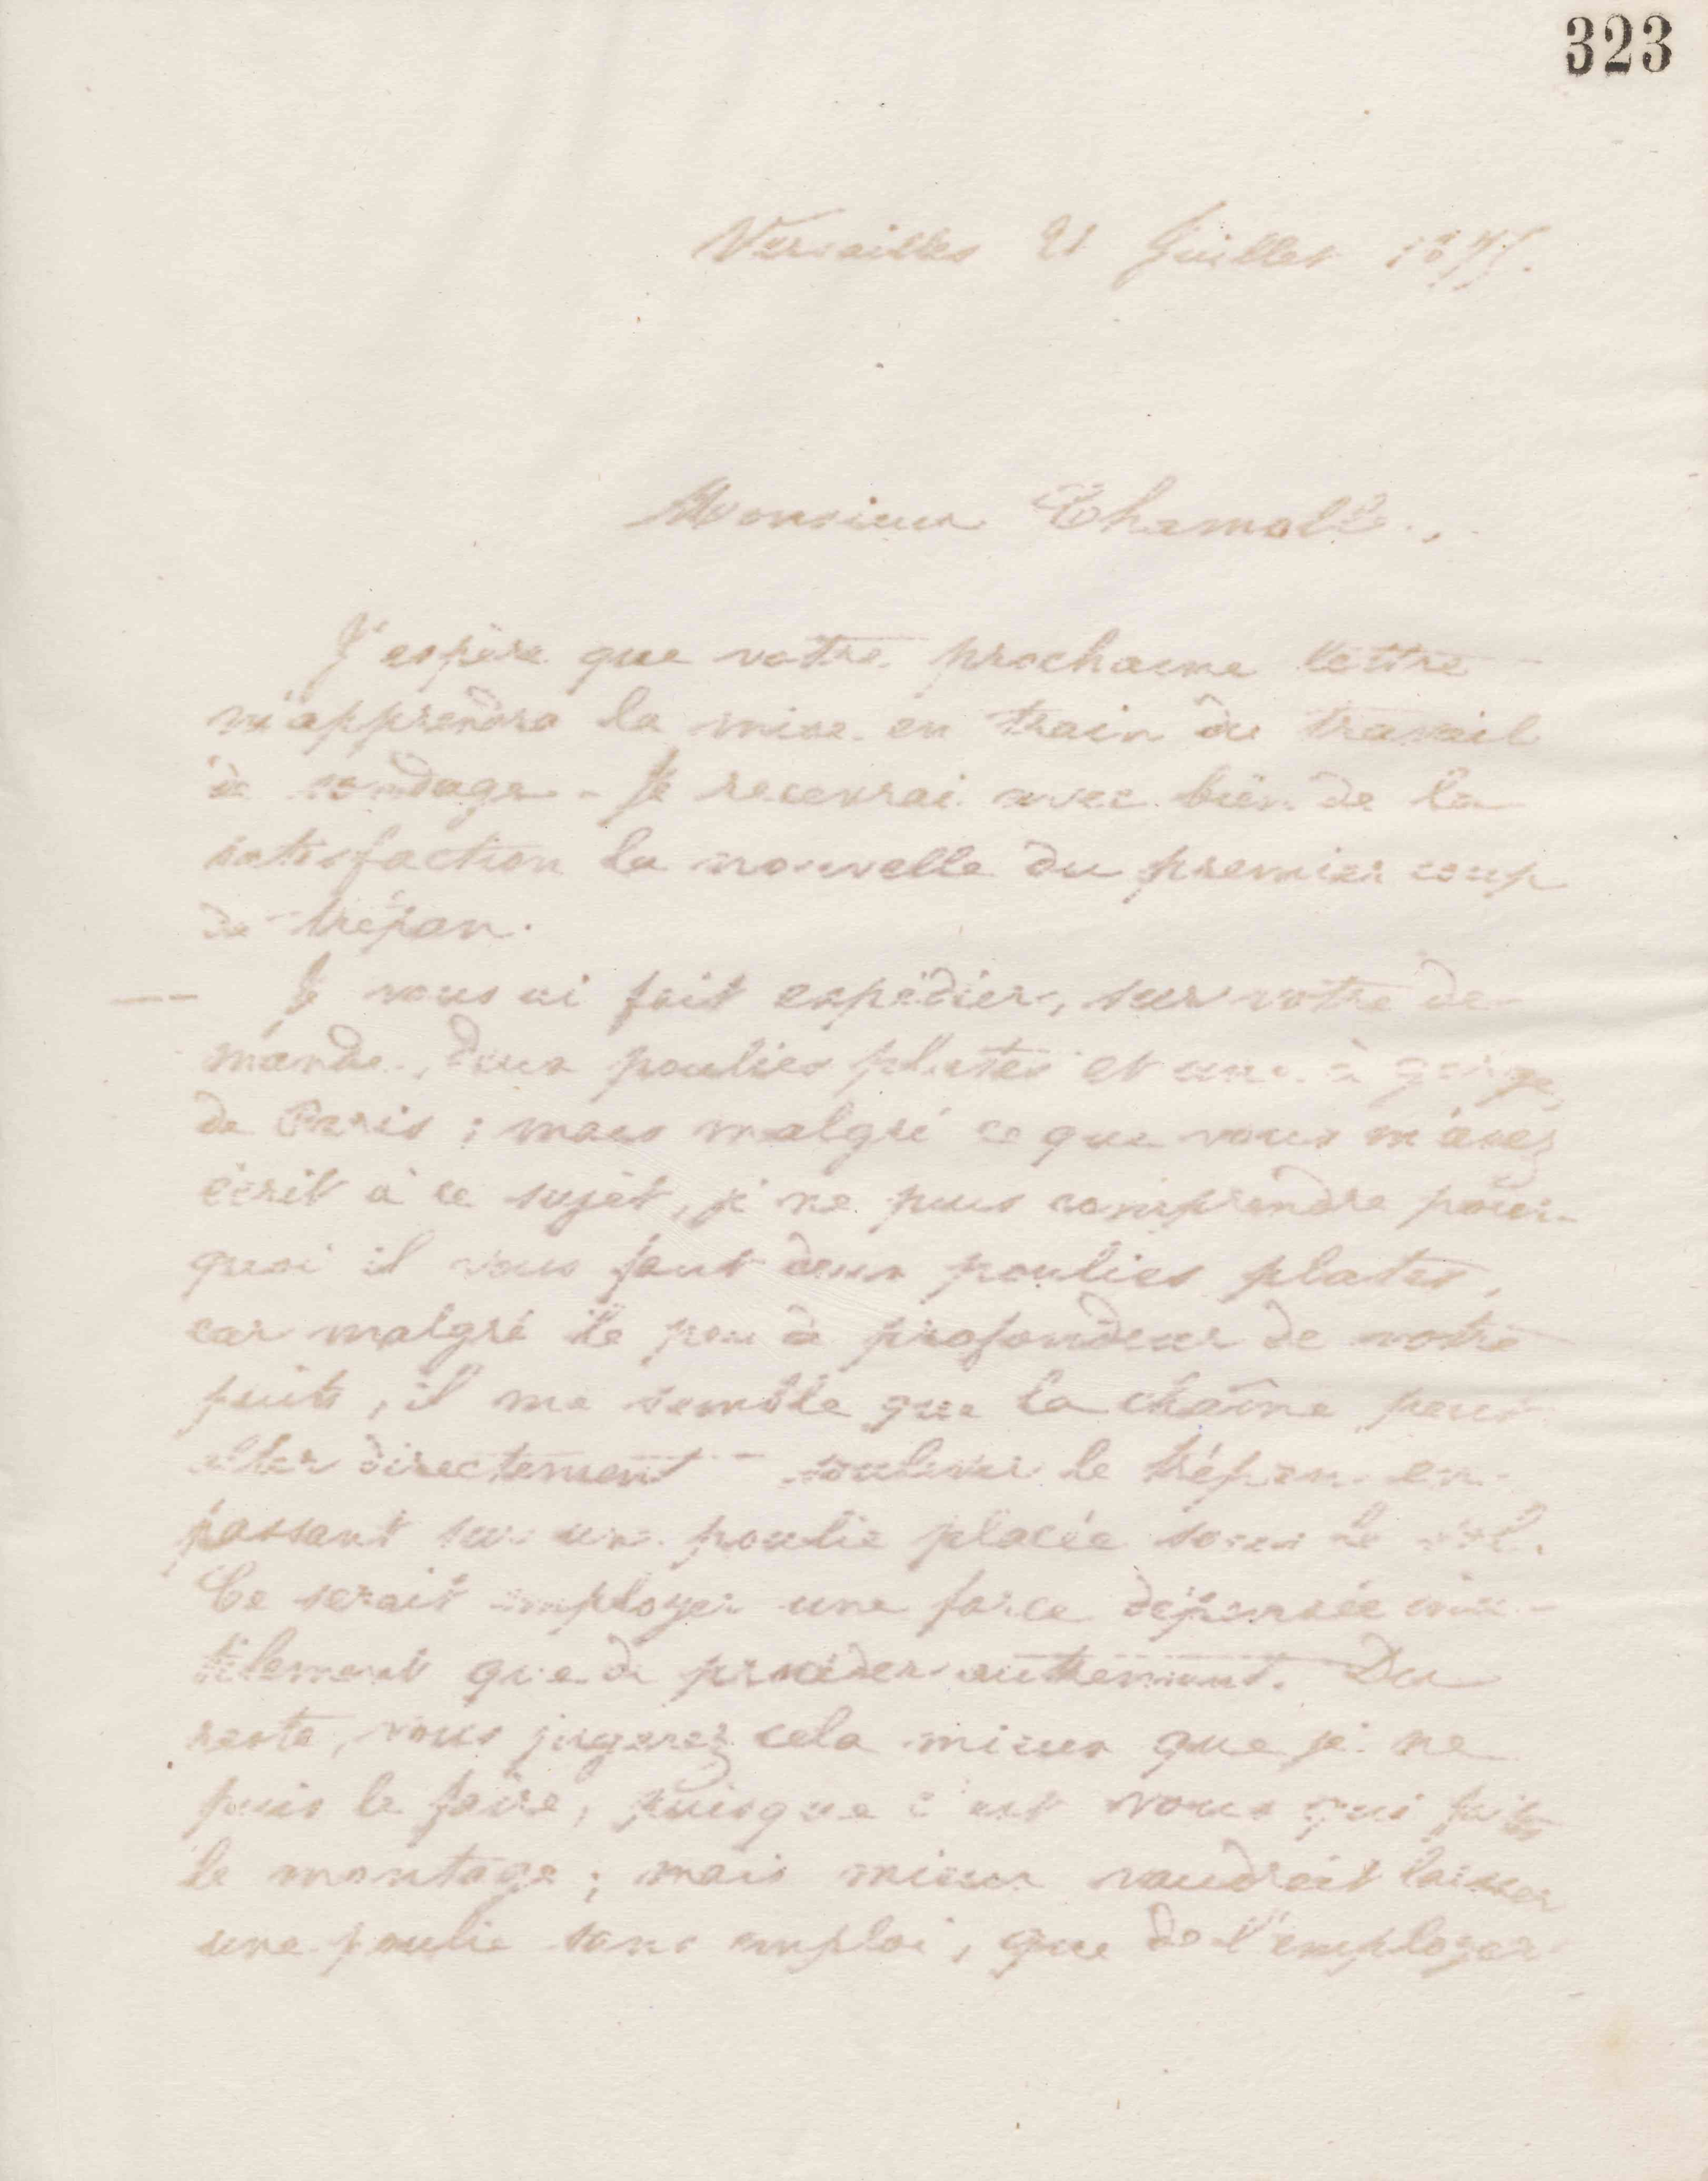 323
Versailles 21 Juillet 1875.
Monsieur
J'espère que votre prochaine lettre
m'apprendra la mise en train du travail
de sondage - Je recevrai avec bien de la
satisfaction la nouvelle du premier coup
de trépan.
Je vous ai fait expédier, sur votre de-
mande, deux poulies plates et une à gorge,
de Paris ; mais malgré ce que vous m'avez
écrit à ce sujet, je ne puis comprendre pour-
quoi il vous faut deux poulies plates,
car malgré le peu de profondeur de votre
puits, il me semble que la chaîne peut
aller directement soulever le trépan en
passant sur une poulie placée sous le sol.
Ce serait employer une force dépensée inu-
tilement que de procéder autrement. Du
reste, vous jugerez cela mieux que je ne
puis le faire, puisque c'est vous qui faites
le montage ; mais mieux vaudrait laisser
une poulie sans emploi, que de l'employer